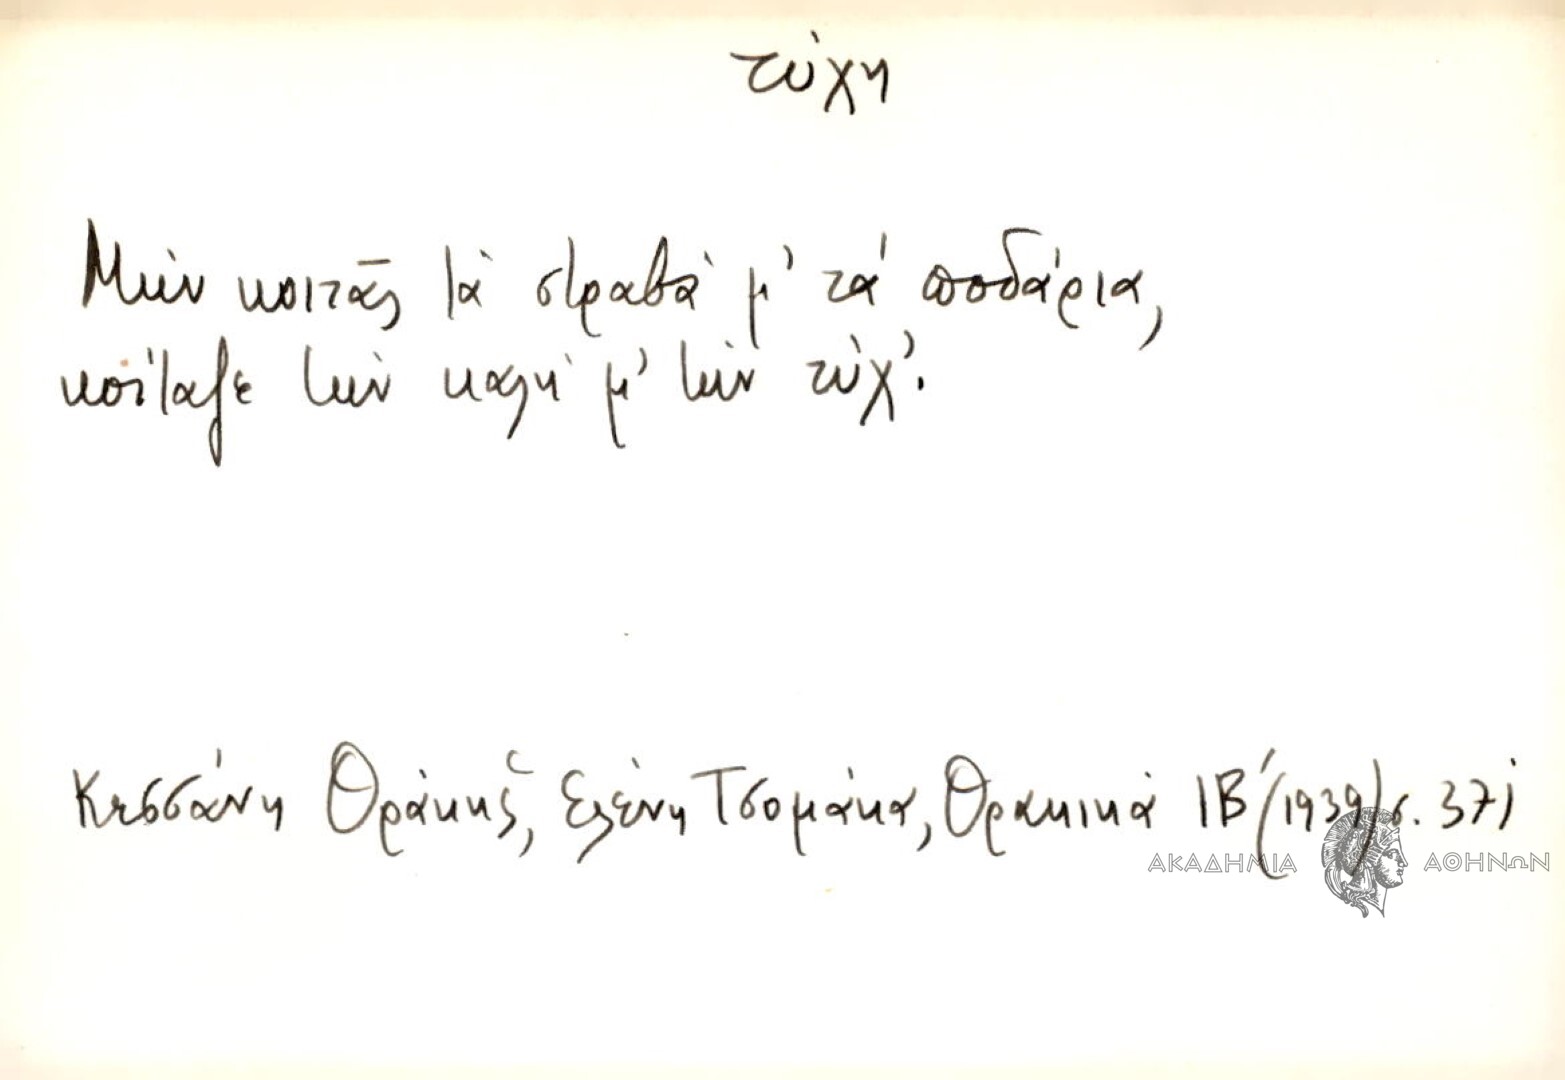 τύχη
Μὴν κοιτᾶς τὰ στραβὰ μ' τὰ ποδάρια,
κοίταξε τὴν καλὴ μ' τὴν τύχ'.
Κεσσάνη Θράκης, Ἑλένη Τσομάκα, Θρακικὰ ΙΒ' (1939) σ. 371
ΑΚΑΔΗΜΙΑ ΑΘΗΝΩΝ